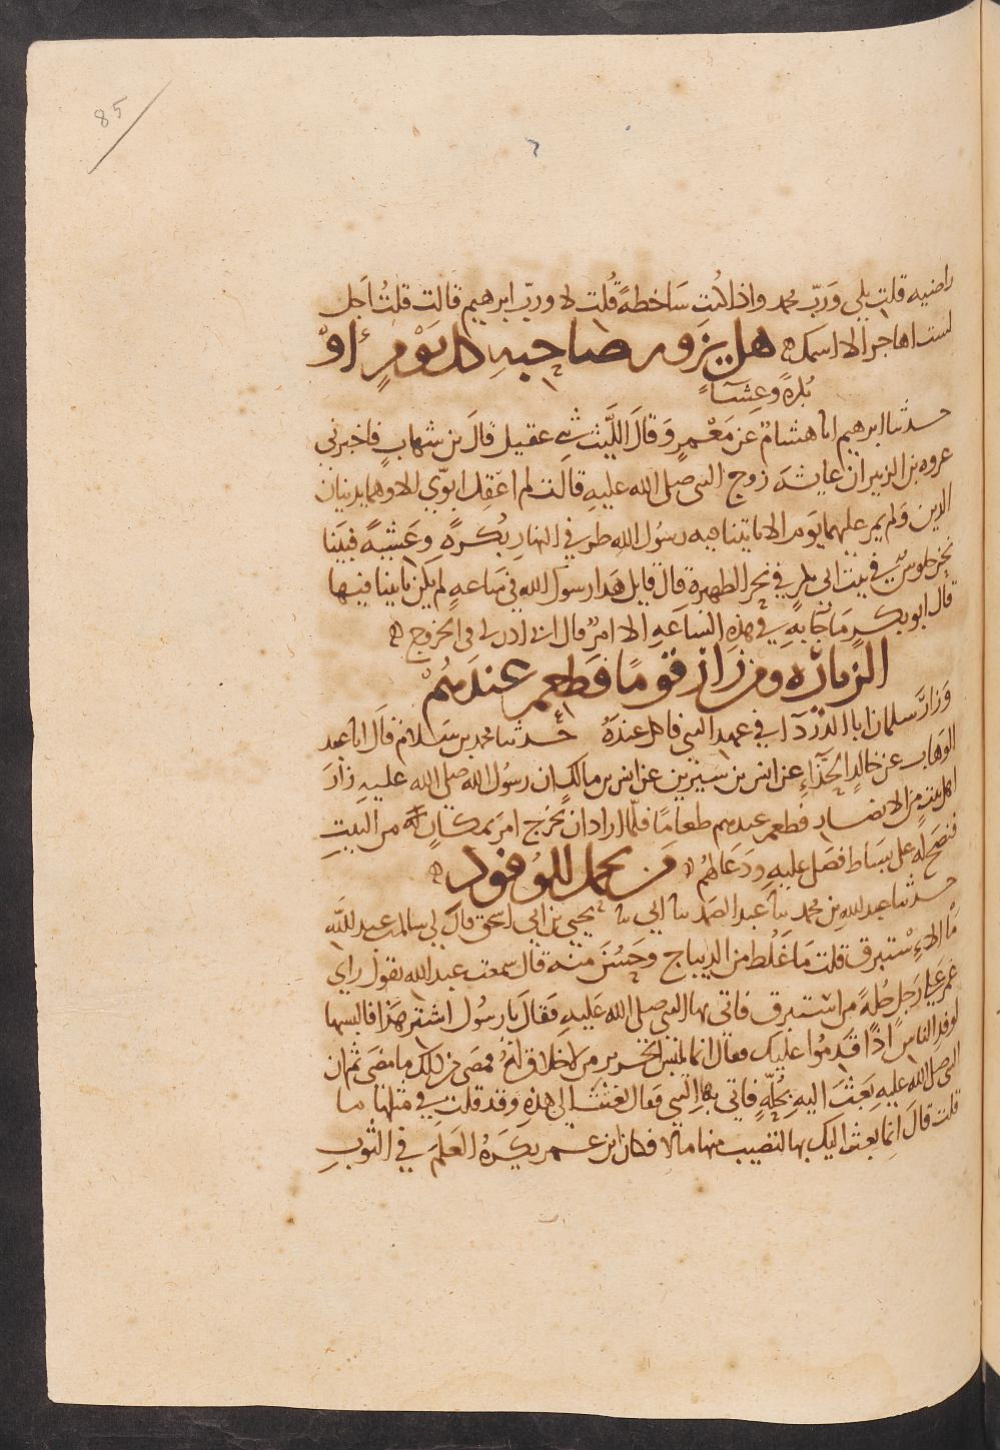 85
راضيه قلت بلى وَرَبّ محمد واذا كنتِ سَاخطهً قُلت لا وربّ ابرهيم قالت قلتُ اجَل
لست اهاجر الا اسمك هل يزور صاحبه كل يَوْمٍ أوْ
بُكرةً وعِشيّاً
حدثنا ابرهيم انا هشامٌ عن مَعْمرٍ وَقالَ اللَّيث ني عقيل قالَ بن شهابٍ فاخبرني
عروه بن الزبير ان عايشهَ زوج النبي صلى الله عليهِ قالت لم اعقِل ابوَّي الا وهما يدينان
الدين وَلم يمر عليهما يَوم الا ياتينا فيه رسُول الله طرفي النهارِ بُكرةً وعَشيةً فبَينا
نحن جلوسٌ في بيت ابي بكر في نحر الظهيرة قال قايل هَذا رسول الله في سَاعهٍ لم يكن ياتينا فيها
قال ابو بكرٍ مَا جَا بهِ في هذِهِ السَاعَهِ الا امرٌ قال اني اذن لي في الخروج
الزيارَه ومن زار قومًا فَطعم عندَهُمْ
وَزارَ سلمان ابا الدَّردَآ في عهد النبي فاكل عندَهُ حدثنا محمد بن سَلام قالَ انا عبد
الوَهاب عن خالدٍ الحَذّاءِ عن انس بن سيرين عن انس بن مالكٍ ان رسُول الله صلى الله عليهِ زارَ
اهل بيتٍ من الانصار فطعم عندهم طعامًا فلمّا اراد ان يخرج امرَ بمكانٍ له من البيتِ
فنضح له على بسَاط فصَلى عليهِ ودَعَا لهُم من تجمل للوُفود
حدثنا عبد اللهِ بن محمد نا عبد الصّمد نا ابي نا يحيي بن ابي اسحق قالَ لي سالم بن عبد اللهِ
مَا الاِسْتبرق قلت مَا غلُظ من الديباج وحَسُنَ منهُ قال سمعت عبد الله يقول راي
عمر عَلى رَجلٍ حُلهً من استبرق فاتى بها النبي صلى الله عَليهِ فقالَ يا رسُول اشترِ هَذا فالبسها
لوفد الناسِ اذا قَدمُوا عليك فقالَ انما يلبس الحَرير من لا خلاقَ لهُ فمضَى من ذلك ما مضى ثم ان
النبي صلى الله عليهِ بَعثَ اليهِ بحُلهٍ فاتى بها النبي فقال بعثتَ الي هذهِ وقد قلت في مثلها ما
قلت قالَ انما بعثت اليك بها لتصيبَ منها مالا فكان ابن عمر يكرَهُ العَلَم في الثوبِ